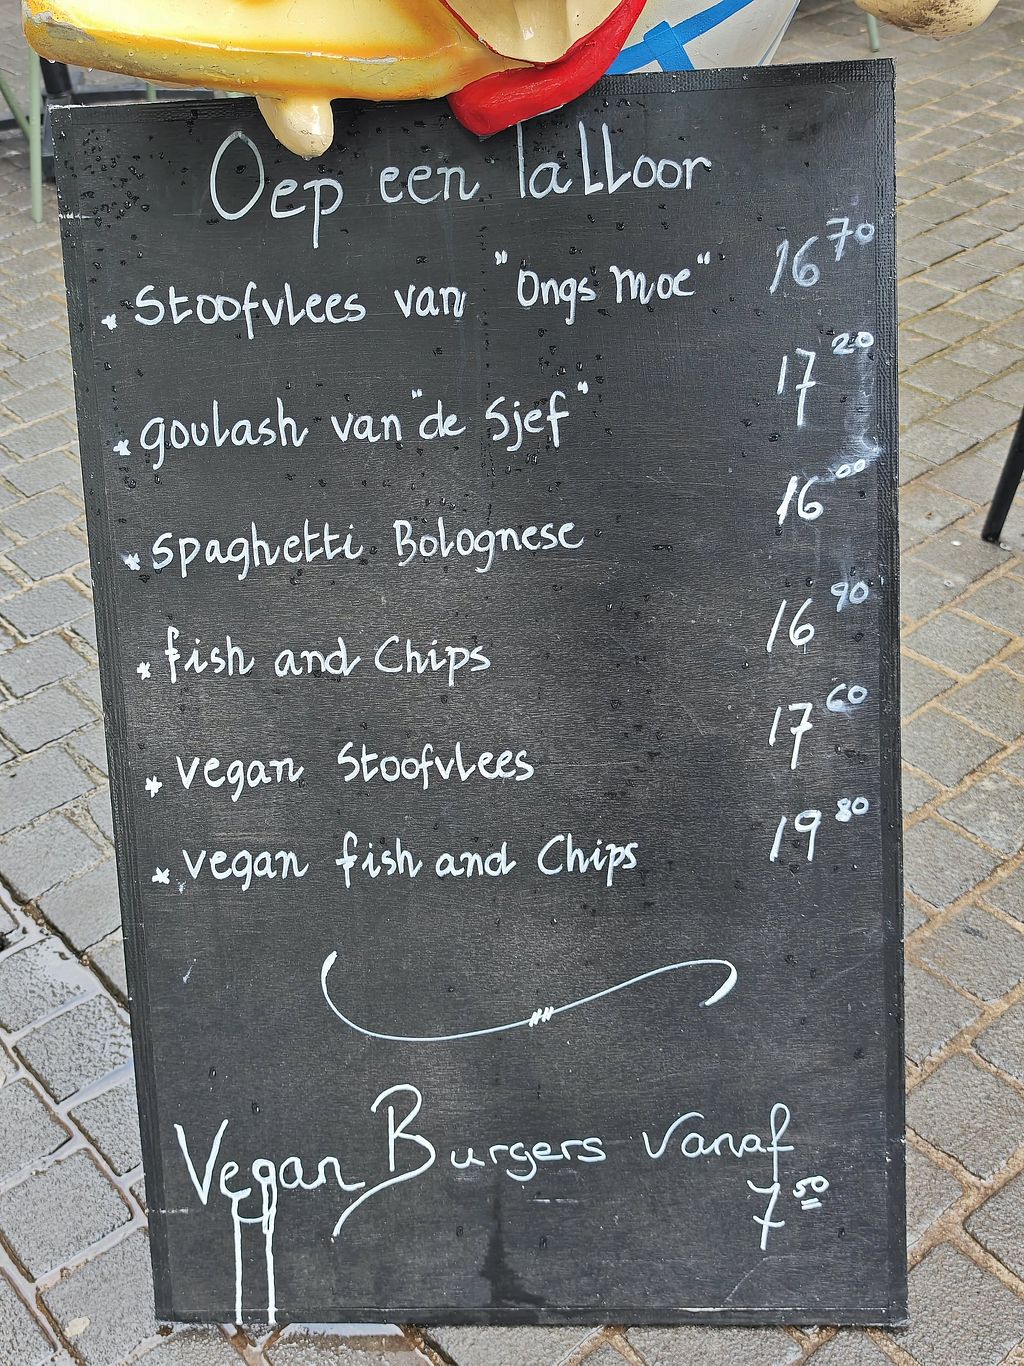 Oep een talloor
* Stoofvlees van "Ongs Moe" 16 70
* goulash van "de Sjef" 17 20
* Spaghetti Bolognese 16 00
* fish and Chips 16 90
* vegan Stoofvlees 17 60
* vegan fish and Chips 19 80
Vegan Burgers vanaf
7 50